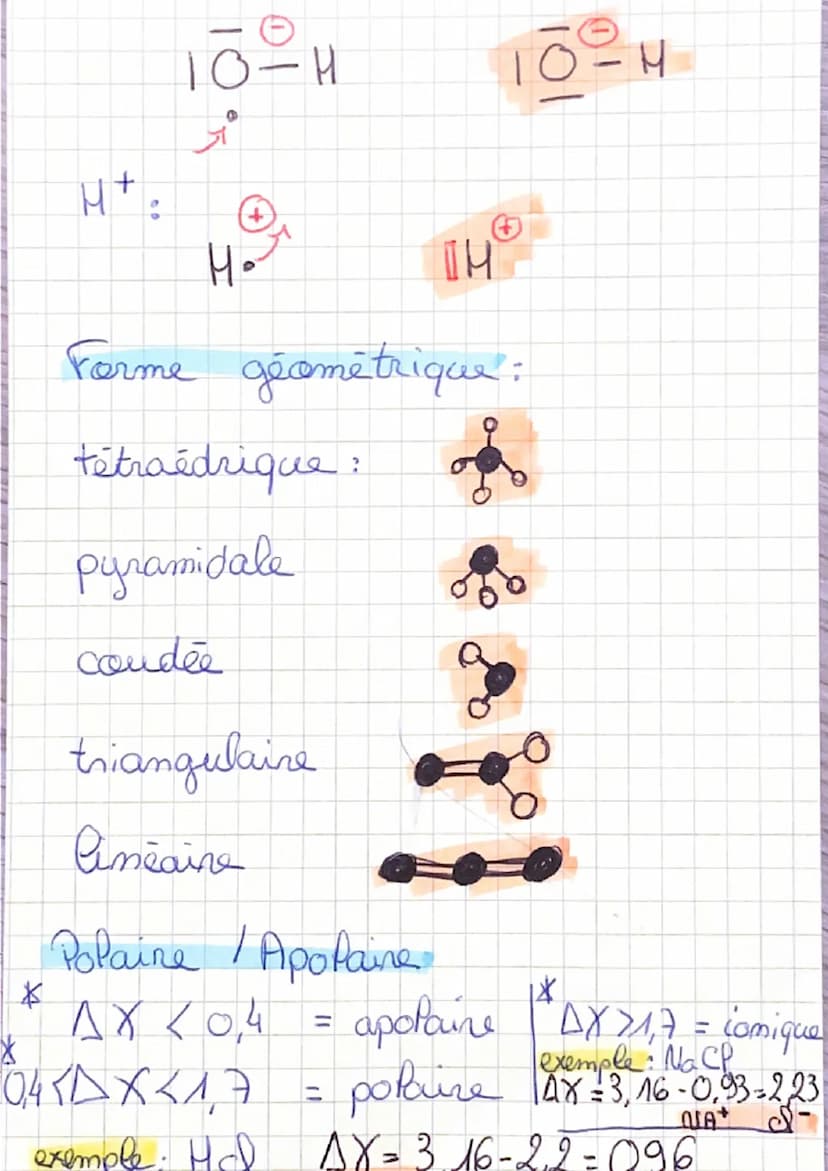 |O̅⊖ — H
|O̅⊖ — H
H⁺ :
H• ⊕
▯H ⊕
Forme géométrique :
tétraédrique :
pyramidale
coudée
triangulaire
linéaire
Polaire / Apolaire
* ΔX < 0,4 = apolaire
* 0,4 < ΔX < 1,7 = polaire
* ΔX > 1,7 = ionique
exemple : NaCl
ΔX = 3,16 - 0,93 = 2,23
NA⁺ Cl⁻
exemple : HCl ΔX = 3,16 - 2,2 = 0,96